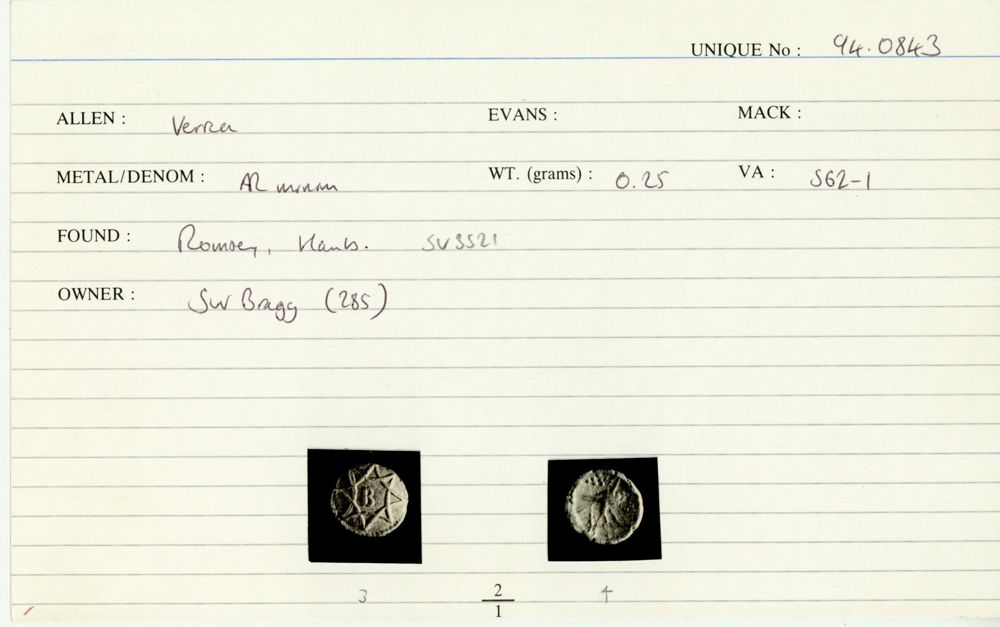 UNIQUE No : 94.0843
ALLEN : Verica EVANS : MACK :
METAL/DENOM : AR minim WT. (grams) : 0.25 VA : 562-1
FOUND : Romsey, Hants. SU3521
OWNER : SW Bragg (285)
B
3 2/1 4